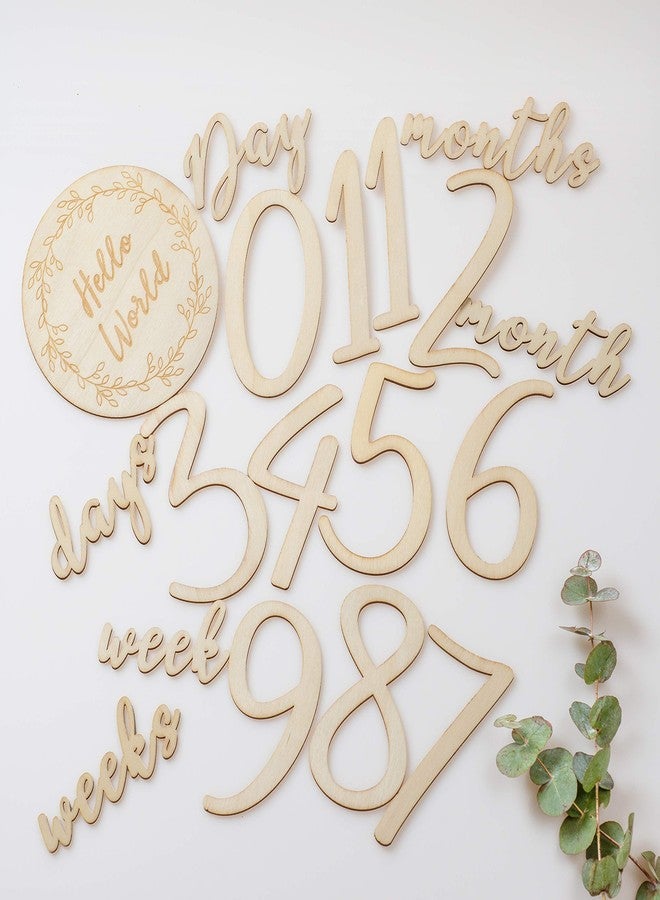 Day
months
Hello
World
0 1 1 2
month
days
3 4 5 6
week
9 8 7
weeks